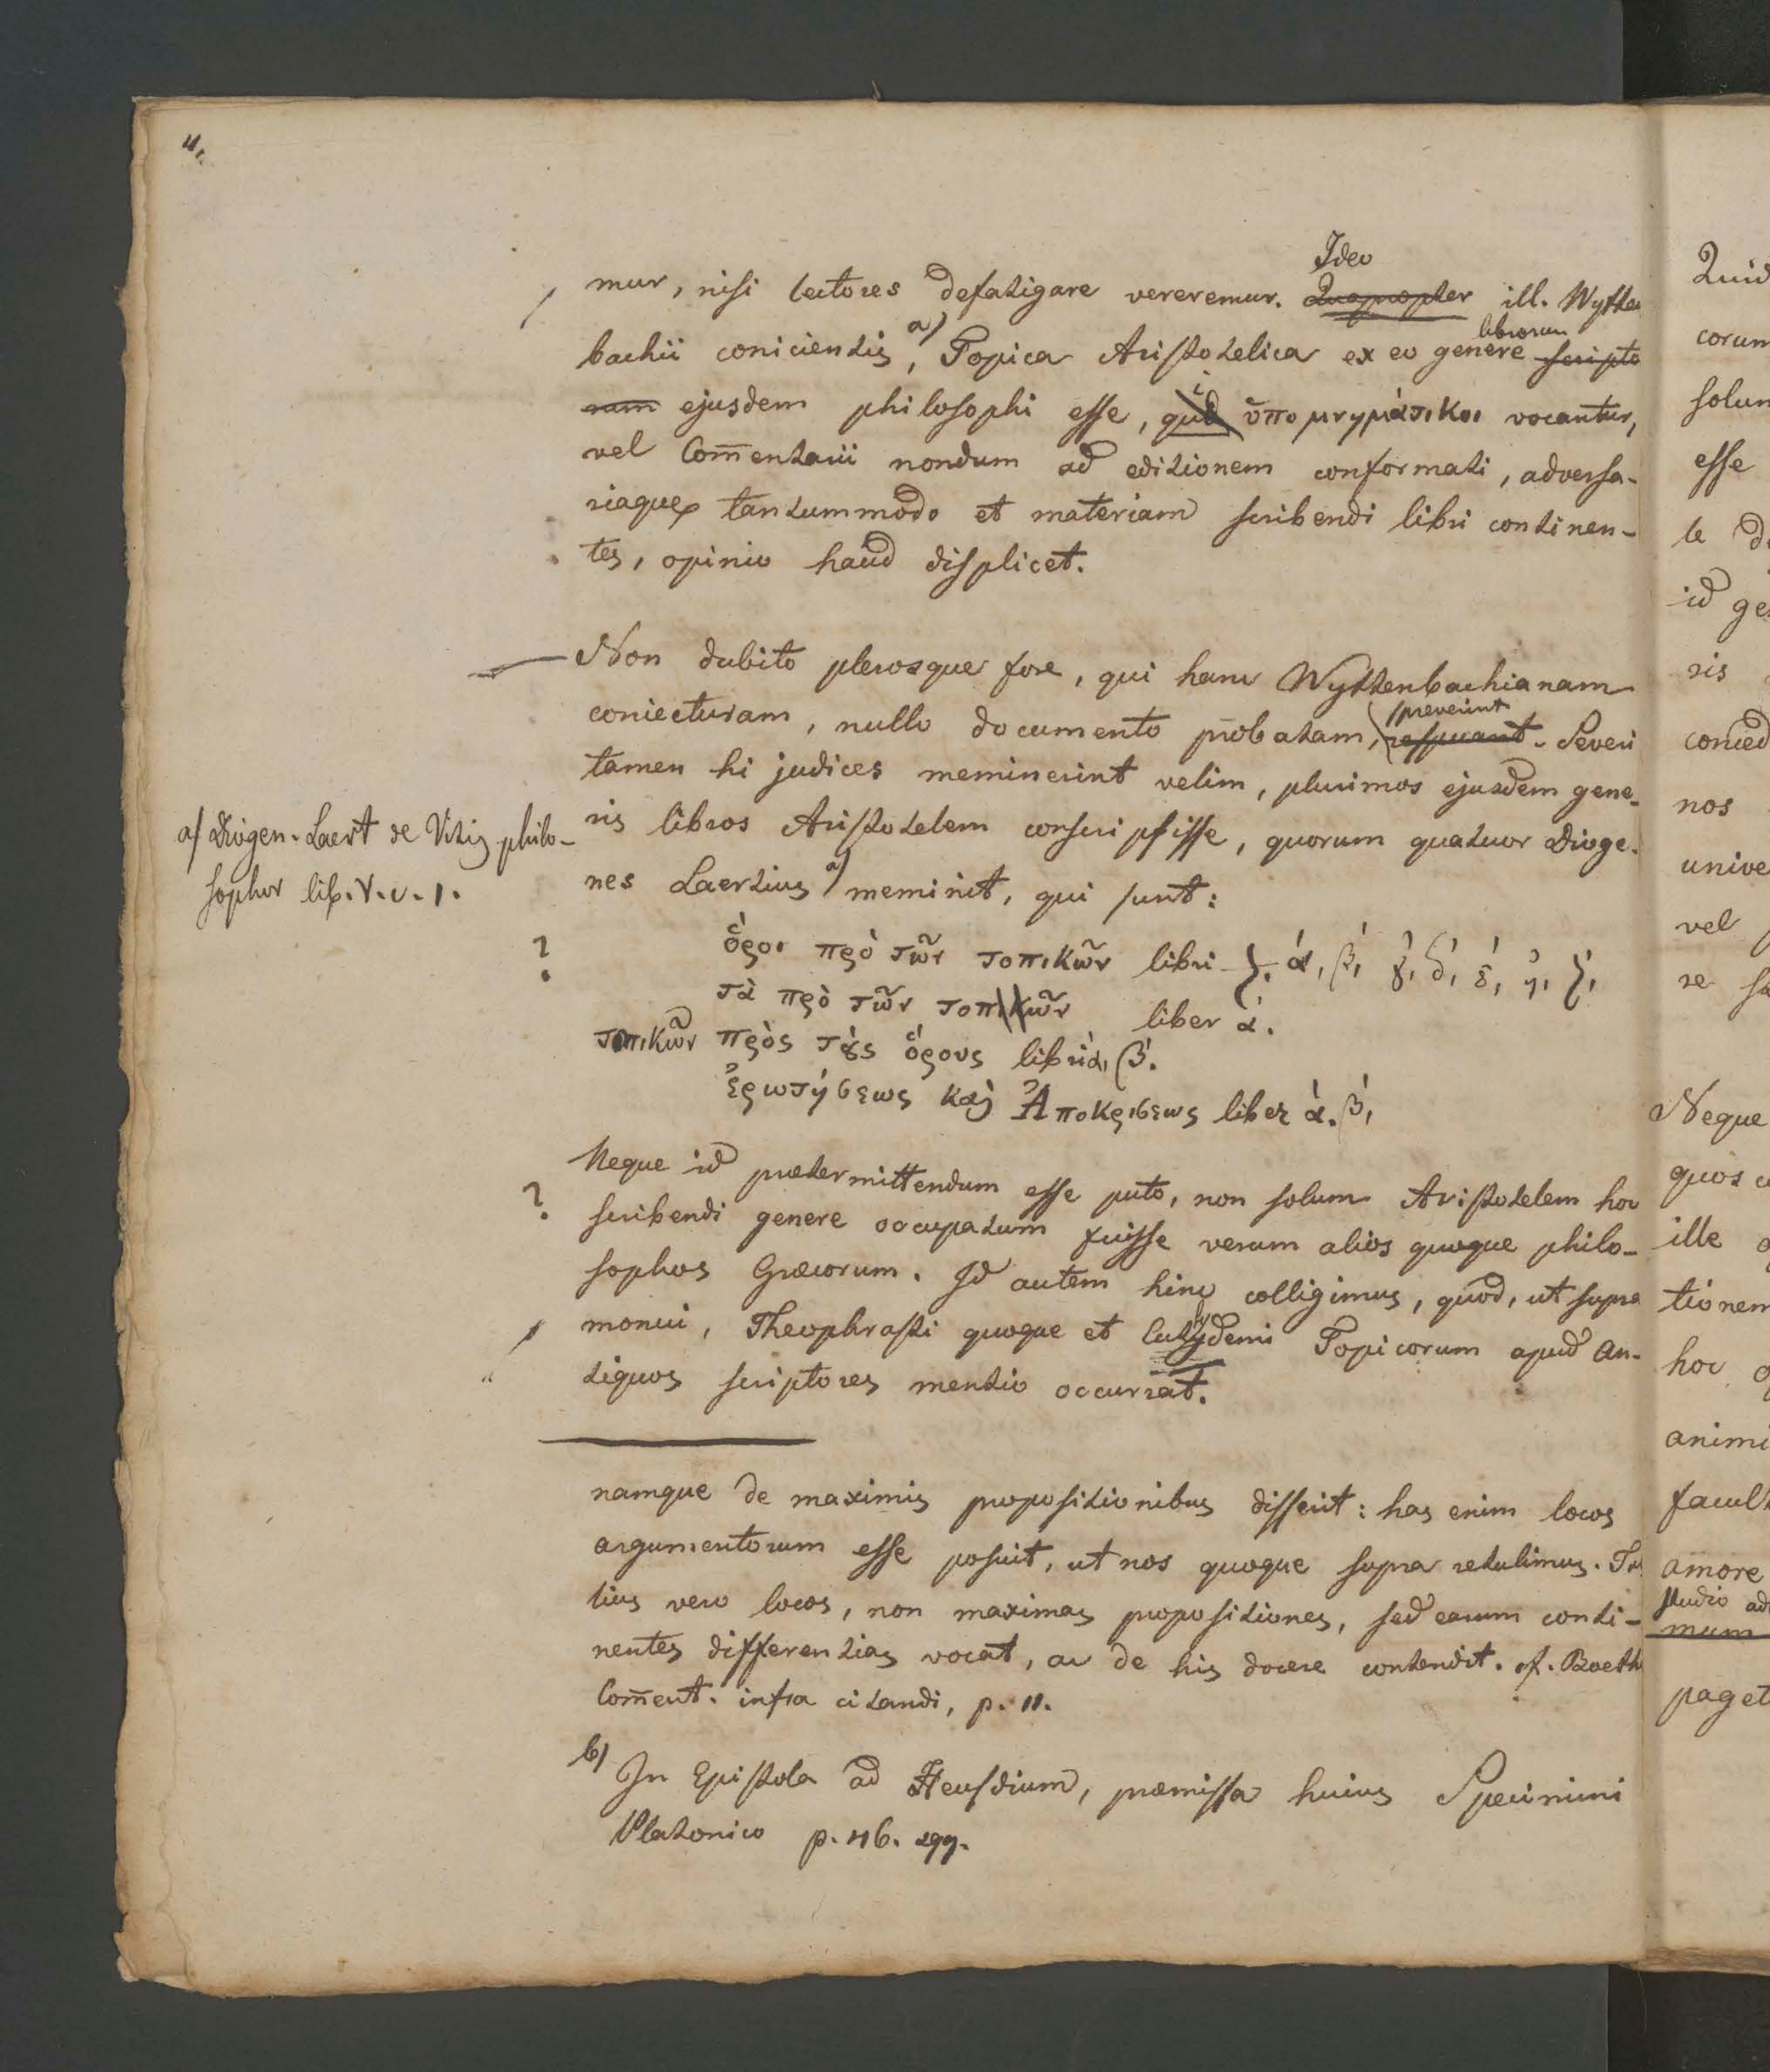 4.
Ideo
mur, nisi lectores defatigare vereremur. Quapropter ill. Wytten
librorum
bachii conicientis a), Topica Aristotelica ex eo genere scripto
rum ejusdem philosophi esse, qui ὑπομνημάτικοι vocantur,
vel Com̄entarii nondum ad editionem conformati, adversa-
riaque tantummodo et materiam scribendi libri continen-
tes, opinio haud displicet.
Non dubito plerosque fore, qui hanc Wyttenbachianam
coniecturam, nullo documento probatam, respuant. Severi
tamen hi judices meminerint velim, plurimos ejusdem gene-
ris libros Aristotelem conscripsisse, quorum quatuor Dioge-
nes Laertius a) meminit, qui sunt:
a) Diogen. Laert de Vitis philo-
sophor lib. V. c. 1.
?
ὅροι πρὸ τῶν τοπικῶν libri ζ. ά, β́, γ́, δ́, έ, ή, ζ́,
τὰ πρὸ τῶν τοπικῶν liber ά.
τοπικῶν πρὸς τοὺς ὅρους libri ά, β́.
ἐρωτήσεως καὶ Ἀποκρισεως liber ά. β́,
Neque id prætermittendum esse puto, non solum Aristotelem hoc
?
scribendi genere occupatum fuisse verum alios quoque philo-
sophos Græcorum. Id autem hinc colligimus, quod, ut supra
monui, Theophrasti quoque et Eutydemi Topicorum apud an-
tiquos scriptores mentio occurrat.
namque de maximis propositionibus disserit: has enim locos
argumentorum esse posuit, ut nos quoque supra retulimus. Tul
lius vero locos, non maximas propositiones, sed earum conti-
nentes differentias vocat, ac de his docere contendit. cf. Boeth
Com̄ent. infra citandi, p. 11.
b) In Epistola ad Heusdium, præmissa huius Specimini
Platonico p. 46. sqq.
Quid
corum
solum
esse
le
id ge
ris
conced
nos
unive
vel
re
Neque
quos
ille
tionem
hoc
animi
facult
amore
studio ad
mum
paget